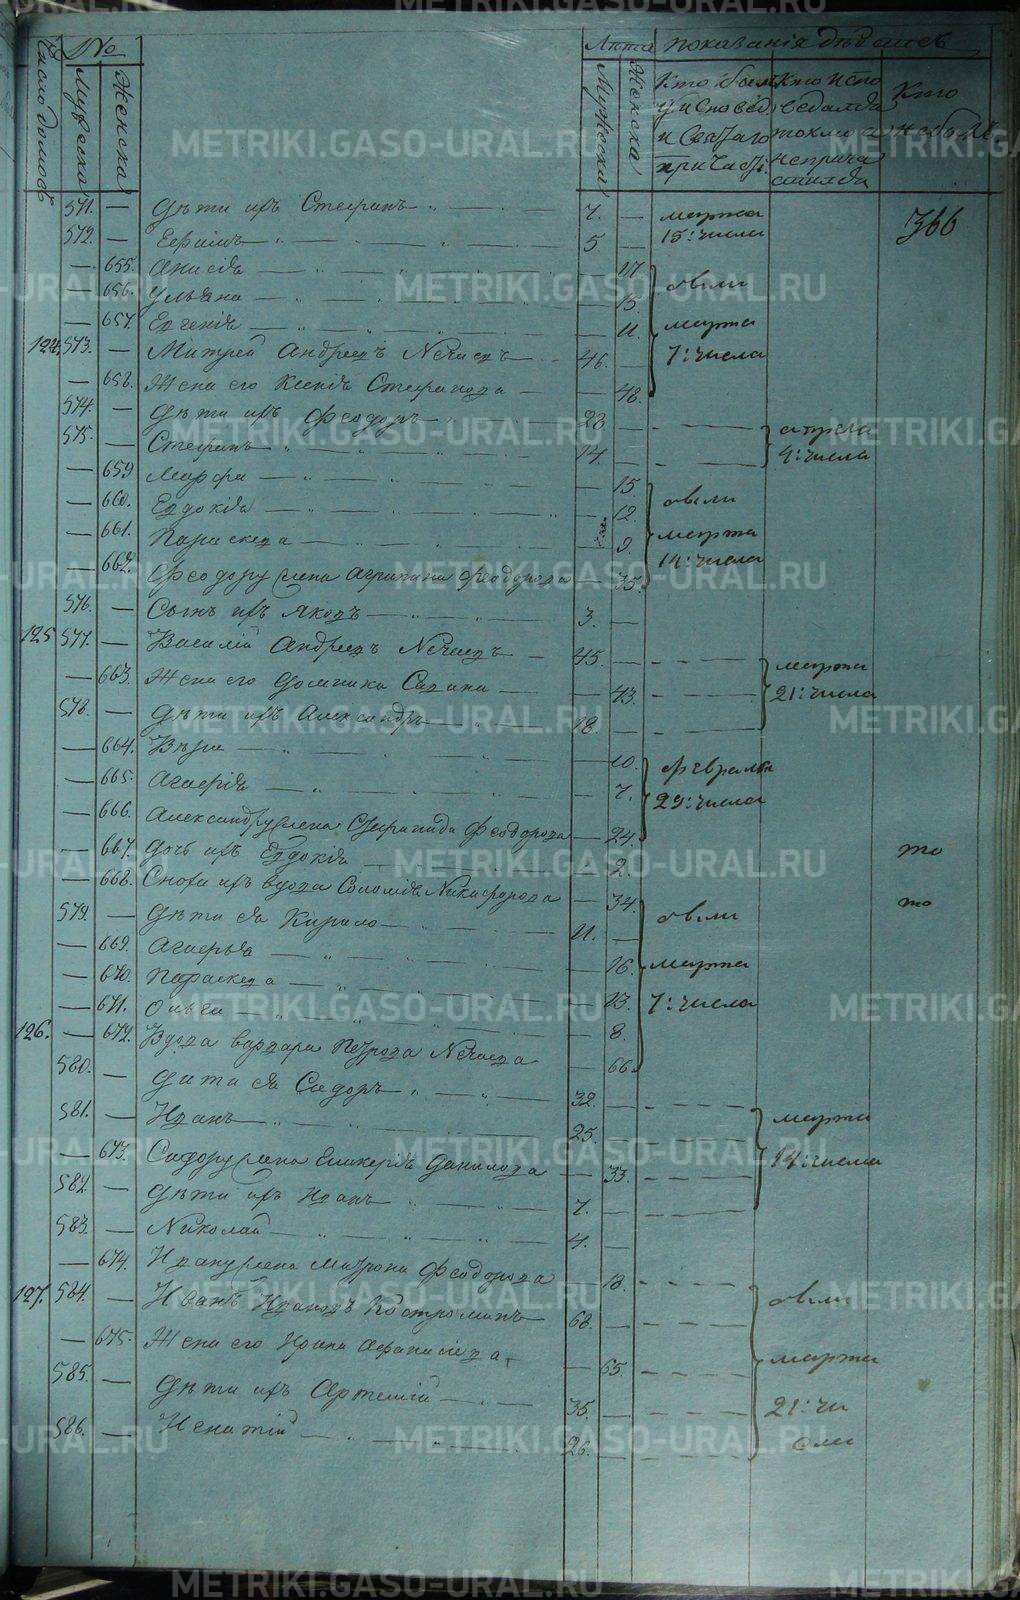 Число домовъ
No
Мужеска
Женска
Лѣта
Мужеска
Женска
показанія дѣйствъ
Кто былъ у исповѣди и Святаго причастія
Кто исповѣдался токмо а непричастился
Кто небылъ
571. — Дѣти ихъ Стефанъ 7. — марта
366
572. — Ефимъ 5. — 15: числа
— 655. Анисія — 17.
— 656. Ульяна — 15. были
— 657. Евгенія — 11. марта
124. 573. — Митрей Андреевъ Нечаевъ 46. — 7: числа
— 658. Жена его Ксенія Стефанова — 48.
574. — Дѣти ихъ Феодоръ 23. — апреля
575. — Стефанъ 14. — 4: числа
— 659 Марфа — 15.
— 660. Евдокія — 12. были
— 661. Параскева — 9. марта
— 662. Феодору жена Агрипина Феодорова — 35. 14: числа
576. — Сынъ ихъ Яковъ 3. —
125 577. — Василій Андреевъ Нечаевъ 45. — марта
— 663. Жена его Домника Савина — 43. 21: числа
578. — Дѣти ихъ Александръ 18. —
— 664. Вѣра — 10. февраля
— 665. Агафія — 7. 29: числа
— 666. Александру жена Степанида Феодорова — 24.
— 667. Дочь ихъ Евдокія — 2. то
— 668. Сноха ихъ вдова Соломія Никифорова — 34. то
579. — Дѣти ея Кирило 11. — были
— 669. Агафья — 16. марта
— 670. Параскева — 13. 7: числа
— 671. Ольга — 8.
126. — 672. Вдова варвара Петрова Нечаева — 66.
580. — Дити ея Сидоръ 32. —
581. — Иванъ 25. — марта
— 673. Сидору жена Гликерія Данилова — 33. 14: числа
582. — Дѣти ихъ Иванъ 7. —
583. — Николай 4. —
— 674. Ивану жена Матрона Феодорова — 18.
127. 584. — Иванъ Ивановъ Костроминъ 68. — были
— 675. Жена его Ирина Афанасіева — 65. марта
585. — Дѣти ихъ Артемій 35. — 21: чи
586. — Игнатій 26. — сла
METRIKI.GASO-URAL.RU